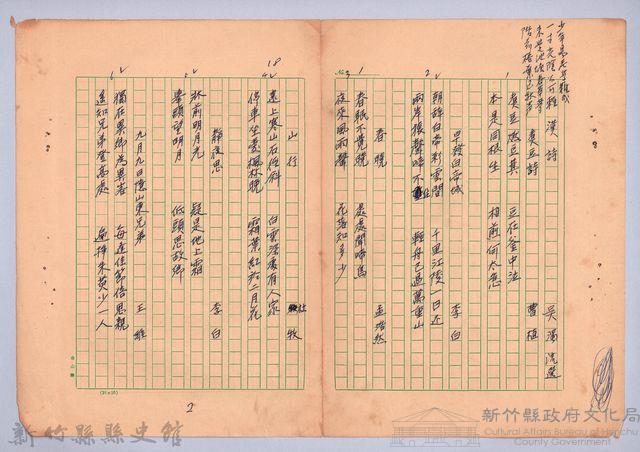 少年易老學難成
一寸光陰不可輕
未覺池塘春草夢
階前梧葉已秋聲
漢詩 吳濁流選
煮豆詩 曹植
煮豆燃豆萁 豆在釜中泣
本是同根生 相煎何太急
早發白帝城 李白
朝辞白帝彩雲間 千里江陵一日还
兩岸猿聲啼不住 輕舟已過萬重山
春曉 孟浩然
春眠不覺曉 處處聞啼鳥
夜來風雨聲 花落知多少
山行 杜牧
遠上寒山石徑斜 白雲深處有人家
停車坐愛楓林晚 霜葉紅於二月花
靜夜思 李白
牀前明月光 疑是地上霜
舉頭望明月 低頭思故鄉
九月九日憶山東兄弟 王維
獨在異鄉為異客 每逢佳節倍思親
遙知兄弟登高處 遍插朱萸少一人
No.
1
2
3
18
4
5
6
2
(24×25)
新竹縣縣史館
新竹縣政府文化局
Cultural Affairs Bureau of Hsinchu County Government